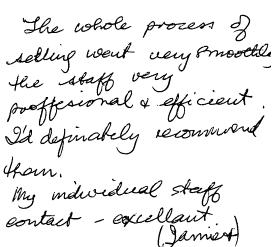 The whole process of
selling went very smoothly
the staff very
proffesional & efficient.
I'd definately recommend
them.
My individual staff
contact - excellant
(Jamie)